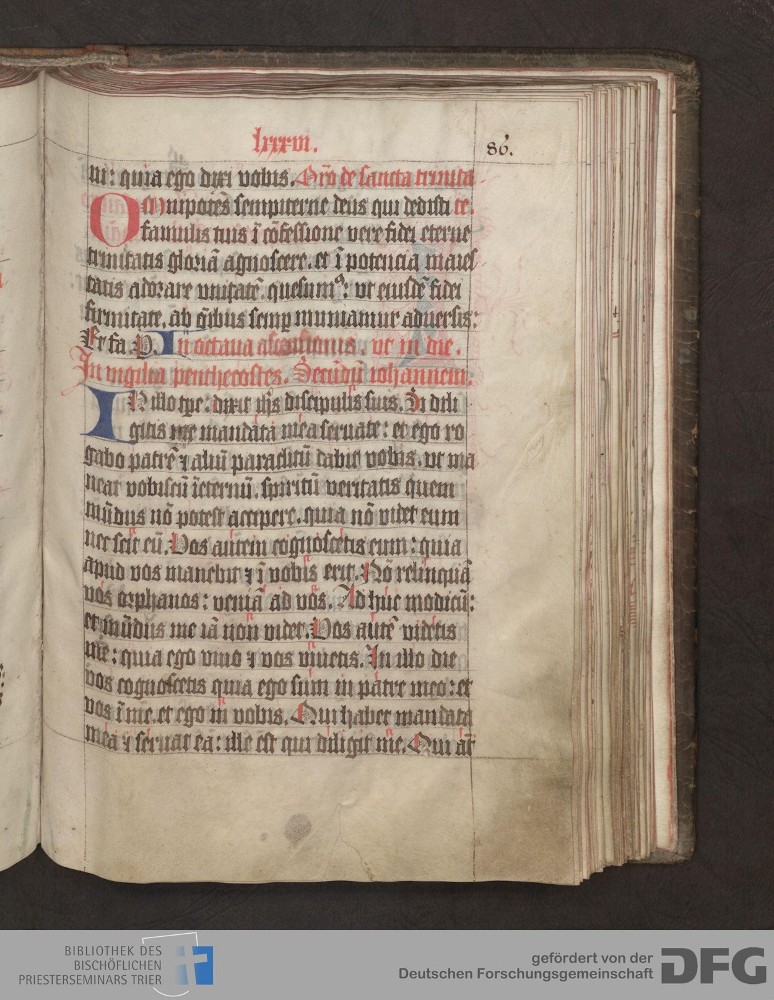 lxxxvi.
86.
ni: quia ego dixi vobis. Oro de sancta trinita
Omnipotēs sempiterne deus qui dedisti te.
famulis tuis ī cōfessione vere fidei eterne
trinitatis gloriā agnoscere. et ī potencia maies
tatis adorare vnitatē. quesumꝰ: vt eiusdē fidei
firmitate. ab oībus semꝑ muniamur aduersis:
In octaua ascensionis. vt in die.
In vigilia penthecostes. Secūdū iohannem.
IN illo tꝑe: dixit ihs discipulis suis. Si dili
gitis me mandata mea seruate: et ego ro
gabo patrē ⁊ aliū paraclitū dabit vobis. vt ma
neat vobiscū īeternū. spiritū veritatis quem
mūdus nō potest accipere. quia nō videt eum
nec scit eū. Vos autem cognoscetis eum: quia
apud vos manebit ⁊ ī vobis erit. Nō relinquā
vos orphanos: veniā ad vos. Ad huc modicū:
et mūdus me iā non videt. Vos autē videtis
me: quia ego viuo ⁊ vos viuetis. In illo die
vos cognoscetis quia ego sum in patre meo: et
vos ī me. et ego in vobis. Qui habet mandata
mea ⁊ seruat ea: ille est qui diligit me. Qui āt
BIBLIOTHEK DES
BISCHÖFLICHEN
PRIESTERSEMINARS TRIER
gefördert von der
Deutschen Forschungsgemeinschaft
DFG